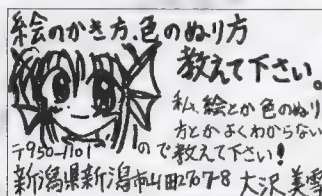 絵のかき方、色のぬり方
教えて下さい。
私、絵とか色のぬり
方とかよくわからない
ので教えて下さい!
〒950-1101
新潟県新潟市山田2707-8 大沢 美雪